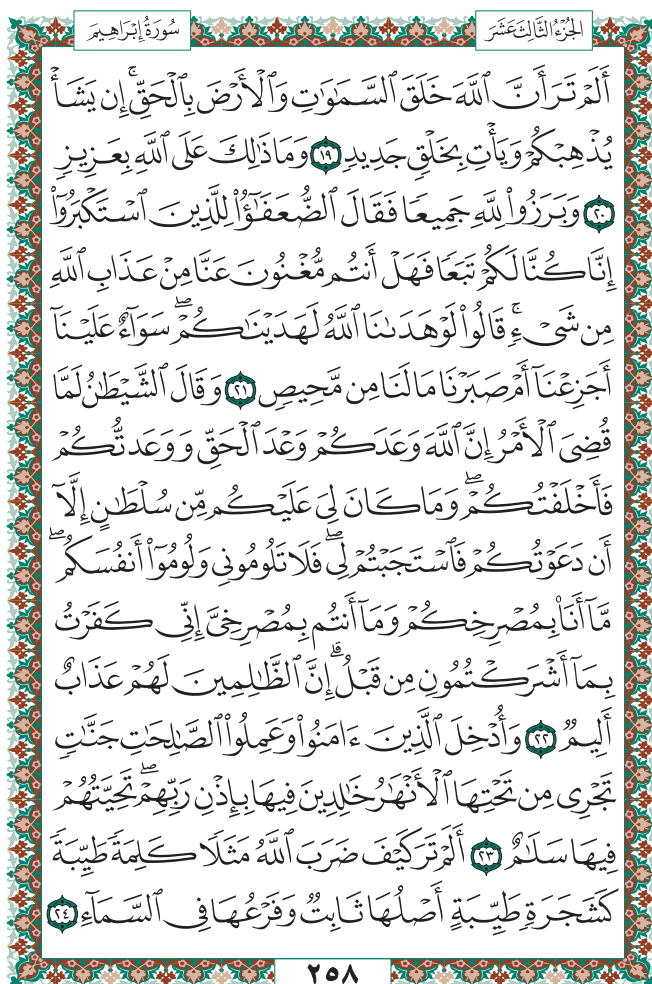 سُورَةُ إِبْرَاهِيم
الجُزْءُ الثَّالِثَ عَشَرَ
أَلَمْ تَرَ أَنَّ ٱللَّهَ خَلَقَ ٱلسَّمَٰوَٰتِ وَٱلْأَرْضَ بِٱلْحَقِّ ۚ إِن يَشَأْ
يُذْهِبْكُمْ وَيَأْتِ بِخَلْقٍ جَدِيدٍ ١٩ وَمَا ذَٰلِكَ عَلَى ٱللَّهِ بِعَزِيزٍ
٢٠ وَبَرَزُوا۟ لِلَّهِ جَمِيعًا فَقَالَ ٱلضُّعَفَٰٓؤُا۟ لِلَّذِينَ ٱسْتَكْبَرُوٓا۟
إِنَّا كُنَّا لَكُمْ تَبَعًا فَهَلْ أَنتُم مُّغْنُونَ عَنَّا مِنْ عَذَابِ ٱللَّهِ
مِن شَىْءٍ ۚ قَالُوا۟ لَوْ هَدَىٰنَا ٱللَّهُ لَهَدَيْنَٰكُمْ ۖ سَوَآءٌ عَلَيْنَآ
أَجَزِعْنَآ أَمْ صَبَرْنَا مَا لَنَا مِن مَّحِيصٍ ٢١ وَقَالَ ٱلشَّيْطَٰنُ لَمَّا
قُضِىَ ٱلْأَمْرُ إِنَّ ٱللَّهَ وَعَدَكُمْ وَعْدَ ٱلْحَقِّ وَوَعَدتُّكُمْ
فَأَخْلَفْتُكُمْ ۖ وَمَا كَانَ لِىَ عَلَيْكُم مِّن سُلْطَٰنٍ إِلَّآ
أَن دَعَوْتُكُمْ فَٱسْتَجَبْتُمْ لِى ۖ فَلَا تَلُومُونِى وَلُومُوٓا۟ أَنفُسَكُم ۖ
مَّآ أَنَا۠ بِمُصْرِخِكُمْ وَمَآ أَنتُم بِمُصْرِخِىَّ إِنِّى كَفَرْتُ
بِمَآ أَشْرَكْتُمُونِ مِن قَبْلُ ۗ إِنَّ ٱلظَّٰلِمِينَ لَهُمْ عَذَابٌ
أَلِيمٌ ٢٢ وَأُدْخِلَ ٱلَّذِينَ ءَامَنُوا۟ وَعَمِلُوا۟ ٱلصَّٰلِحَٰتِ جَنَّٰتٍ
تَجْرِى مِن تَحْتِهَا ٱلْأَنْهَٰرُ خَٰلِدِينَ فِيهَا بِإِذْنِ رَبِّهِمْ ۖ تَحِيَّتُهُمْ
فِيهَا سَلَٰمٌ ٢٣ أَلَمْ تَرَ كَيْفَ ضَرَبَ ٱللَّهُ مَثَلًا كَلِمَةً طَيِّبَةً
كَشَجَرَةٍ طَيِّبَةٍ أَصْلُهَا ثَابِتٌ وَفَرْعُهَا فِى ٱلسَّمَآءِ ٢٤
٢٥٨